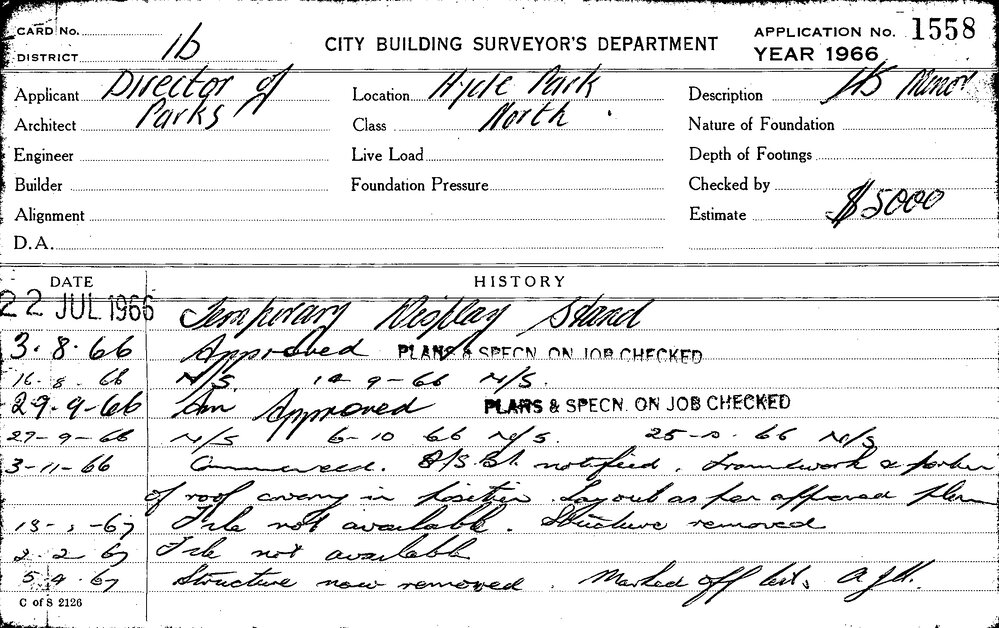 CARD No.
DISTRICT 1b
CITY BUILDING SURVEYOR'S DEPARTMENT
APPLICATION No. 1558
YEAR 1966
Applicant Director of
Location Hyde Park
Description HS Minor
Architect Parks
Class North
Nature of Foundation
Engineer
Live Load
Depth of Footings
Builder
Foundation Pressure
Checked by
Alignment
Estimate $5000
D.A.
DATE HISTORY
22 JUL 1966 Temporary Display Stand
3.8.66 Approved PLANS & SPECN. ON JOB CHECKED
16.8.66 N/S. 14-9-66 N/S.
29-9-66 Am Approved PLANS & SPECN. ON JOB CHECKED
27-9-66 N/S 6-10 66 N/S. 66 N/S
3-11-66 Commenced. notified. Framework & portion
of roof canopy in position. Layout as per approved plan
-67 File not available. Structure removed
2.2.67 File not available
5.4.67 Structure now removed. Marked off list.
C of S 2126